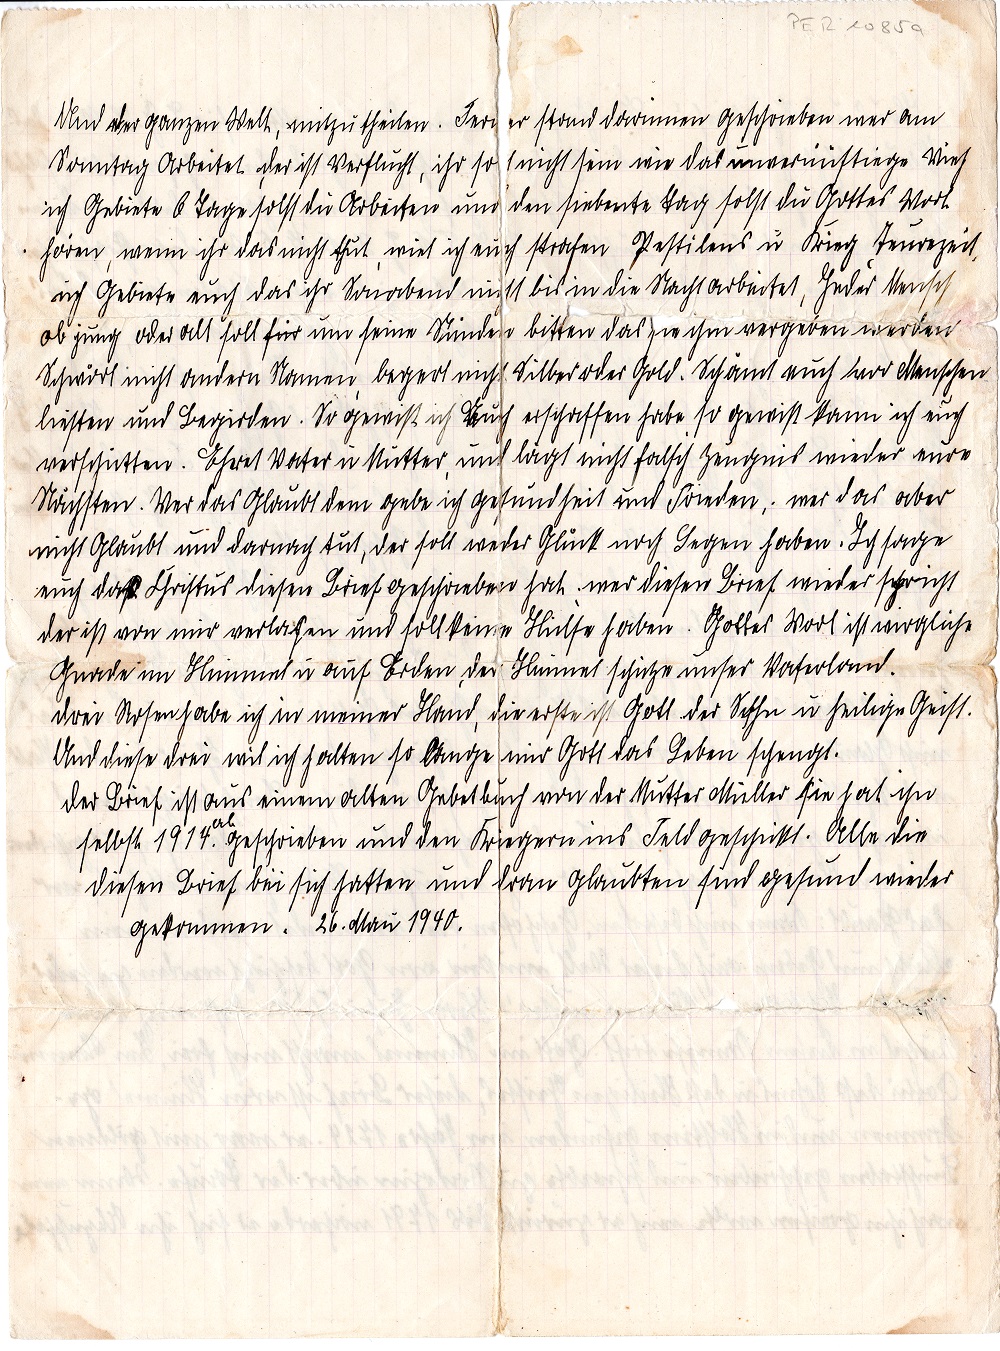 PER 10859
Und der ganzen Welt, mitzutheilen. Ferner stand darinnen geschrieben wer am
Sonntag Arbeitet der ist Verflucht, ihr solt nicht sein wie das unvernüftiege Vieh
ich Gebiete 6 Tage solst du Arbeiten und den siebente tag solst du Gottes Wort
hören, wenn ihr das nicht thut, wiel ich euch strafen Pestilens u Krieg, Teurezeit,
ich Gebiete euch das ihr Sonabend nicht bis in die Nacht arbeitet, Jeder Mensch
ob jung oder alt soll für um seine Sünden bitten das sie ihm vergeben werden
Schwört nicht andern Namen, begert nicht Silber oder Gold. Schämt euch vor Menschen
liesten und Begirden. So gewist ich Euch erschaffen habe, so gewist kann ich euch
verschitten. Ehret Vater u Mutter, und lägt nicht falsch Zeugnis wieder eure
Nächsten. Wer das Glaubt dem gebe ich gesundheit und Frieden, wer das aber
nicht Glaubt und darnach tut, der soll weder Glück noch Segen haben. Ich sage
euch das Christus diesen Brief geschrieben hat, wer diesen Brief wieder spricht
der ist von mir verlassen und soll keine Hülfe haben. Gottes Wort ist wirgliche
Gnade im Himmel u auf Erden, der Himmel schütze unser Vaterland.
drei Rosen habe ich in meiner Hand, die erste ist Gott der Sohn u heilige Geist.
Und diese drei wil ich halten so Lange mir Gott das Leben schengt.
der Brief ist aus einem alten Gebetbuch von der Mutter Müller sie hat ihn
selbst 1914 ab geschrieben und den Kriegern ins Feld geschickt. Alle die
diesen Brief bei sich hatten und dran glaubten sind gesund wieder
gekommen. 26. Mai 1940.